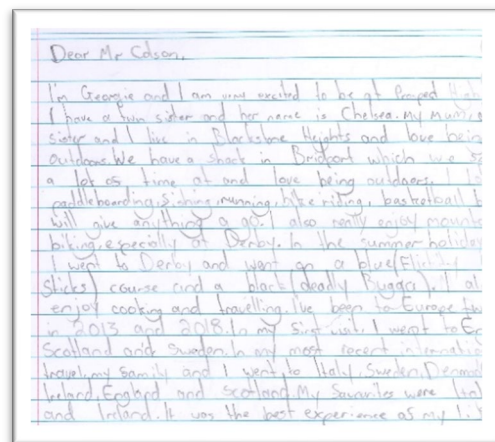 Dear Mr Colson,
I'm Georgie and I am very excited to be at Prospect High
I have a twin sister and her name is Chelsea. My Mum,
sister and I live in Blackstone Heights and love bein
outdoors. We have a shack in Bridport which we
a lot of time at and love being outdoors. I
paddleboarding, fishing, running, bike riding, basketball
will give anything a go. I also really enjoy mount
biking, especially at Derby. In the summer holiday
I went to Derby and went on a blue (Flickity
Sticks) course and a black (deadly Buggar). I al
enjoy cooking and travelling. I've been to Europe tw
in 2013 and 2018. In my first visit, I went to
Scotland and Sweden. In my most recent internati
travel, my family and I went to Italy, Sweden, Denma
Ireland, England and Scotland. My favourites were Ital
and Ireland. It was the best experience of my lif